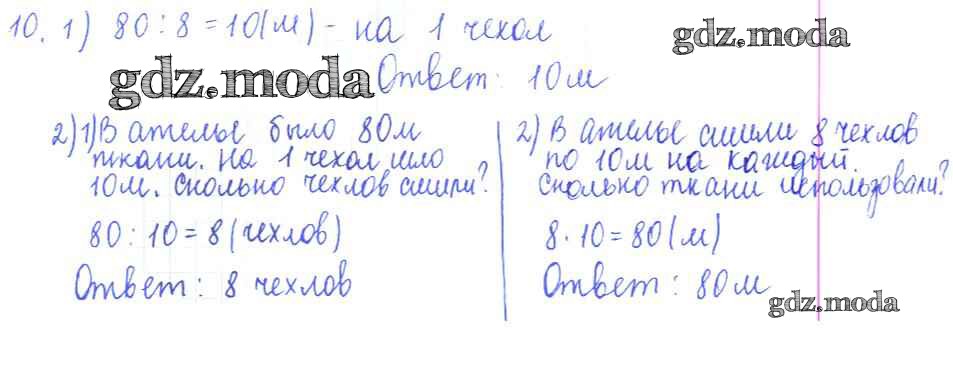 10. 1) 80 : 8 = 10 (м) - на 1 чехол
gdz.moda
gdz.moda
Ответ: 10 м
2) 1) В ателье было 80 м
ткани. На 1 чехол шло
10 м. Сколько чехлов сшили?
80 : 10 = 8 (чехлов)
Ответ: 8 чехлов
2) В ателье сшили 8 чехлов
по 10 м на каждый.
Сколько ткани использовали?
8 · 10 = 80 (м)
Ответ: 80 м
gdz.moda